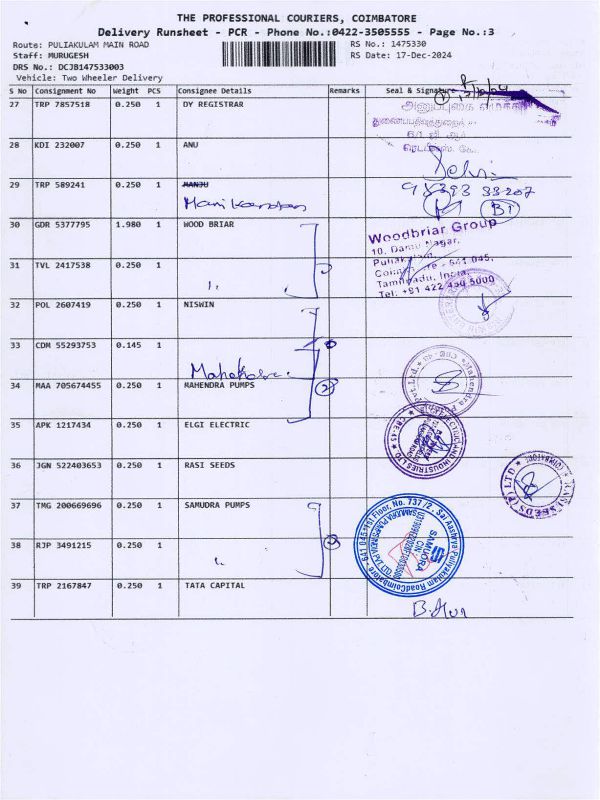 THE PROFESSIONAL COURIERS, COIMBATORE
Delivery Runsheet - PCR - Phone No.:0422-3505555 - Page No.:3
Route: PULIAKULAM MAIN ROAD RS No.: 1475330
Staff: MURUGESH RS Date: 17-Dec-2024
DRS No.: DCJB147533003
Vehicle: Two Wheeler Delivery
S No Consignment No Weight PCS Consignee Details Remarks Seal & Signature
27 TRP 7857518 0.250 1 DY REGISTRAR
28 KDI 232007 0.250 1 ANU
29 TRP 589241 0.250 1 MANJU
Manikandan
98393 33207
B1
30 GDR 5377795 1.980 1 WOOD BRIAR
Woodbriar Group
10, Damu Nagar,
Puliakulam,
Coimbatore - 641 045,
Tamilnadu, India.
31 TVL 2417538 0.250 1
32 POL 2607419 0.250 1 NISWIN
33 CDM 55293753 0.145 1
34 MAA 705674455 0.250 1 MAHENDRA PUMPS
2
35 APK 1217434 0.250 1 ELGI ELECTRIC
36 JGN 522403653 0.250 1 RASI SEEDS
37 TMG 200669696 0.250 1 SAMUDRA PUMPS
SAMUDRA
38 RJP 3491215 0.250 1
39 TRP 2167847 0.250 1 TATA CAPITAL